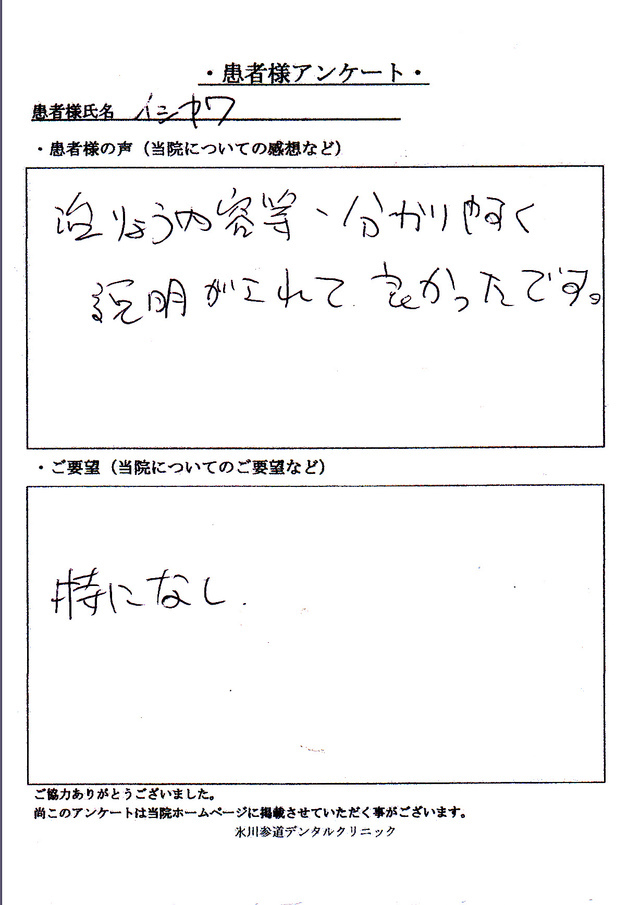 ・患者様アンケート・
患者様氏名 イシカワ
・患者様の声（当院についての感想など）
治りょう内容等、分かりやすく
説明がされて良かったです。
・ご要望（当院についてのご要望など）
特になし.
ご協力ありがとうございました。
尚このアンケートは当院ホームページに掲載させていただく事がございます。
氷川参道デンタルクリニック